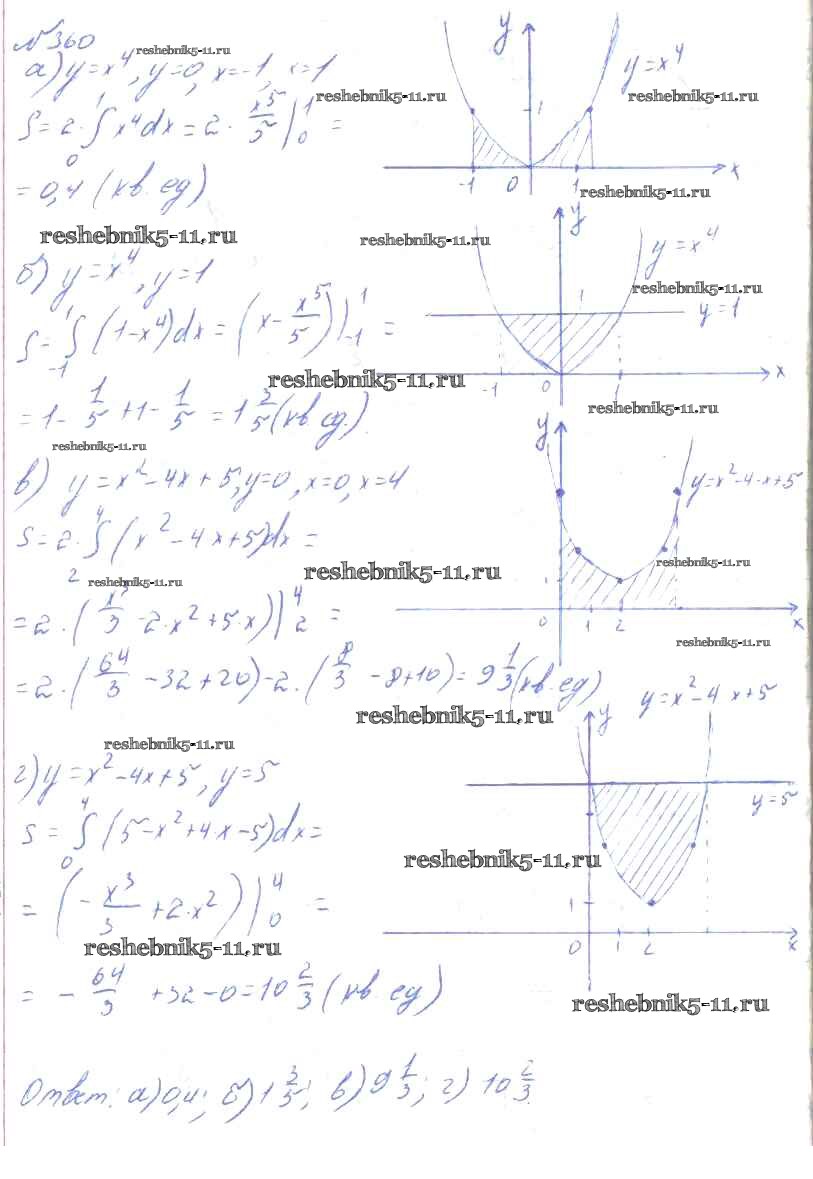 №360
reshebnik5-11.ru
а) y=x⁴, y=0, x=-1, x=1
S=2·∫₀¹ x⁴dx=2·x⁵/5|₀¹=
=0,4 (кв.ед)
y
y=x⁴
reshebnik5-11.ru
reshebnik5-11.ru
1
-1 0 1 x
reshebnik5-11.ru
reshebnik5-11.ru
reshebnik5-11.ru
б) y=x⁴, y=1
S=∫₋₁¹(1-x⁴)dx=(x-x⁵/5)|₋₁¹=
reshebnik5-11.ru
=1-1/5+1-1/5=1 3/5 (кв.ед.)
reshebnik5-11.ru
y
y=x⁴
reshebnik5-11.ru
1
y=1
-1 0 1 x
reshebnik5-11.ru
в) y=x²-4x+5, y=0, x=0, x=4
S=2·∫₂⁴(x²-4x+5)dx=
reshebnik5-11.ru
reshebnik5-11.ru
=2·(x³/3-2·x²+5·x)|₂⁴=
=2·(64/3-32+20)-2·(8/3-8+10)=9 1/3 (кв.ед)
reshebnik5-11.ru
y
y=x²-4·x+5
reshebnik5-11.ru
0 1 2 x
reshebnik5-11.ru
reshebnik5-11.ru
г) y=x²-4x+5, y=5
S=∫₀⁴(5-x²+4x-5)dx=
=(-x³/3+2·x²)|₀⁴=
reshebnik5-11.ru
=-64/3+32-0=10 2/3 (кв.ед)
y=x²-4x+5
y
y=5
reshebnik5-11.ru
1
0 1 2 x
reshebnik5-11.ru
Ответ: а) 0,4; б) 1 3/5; в) 9 1/3; г) 10 2/3